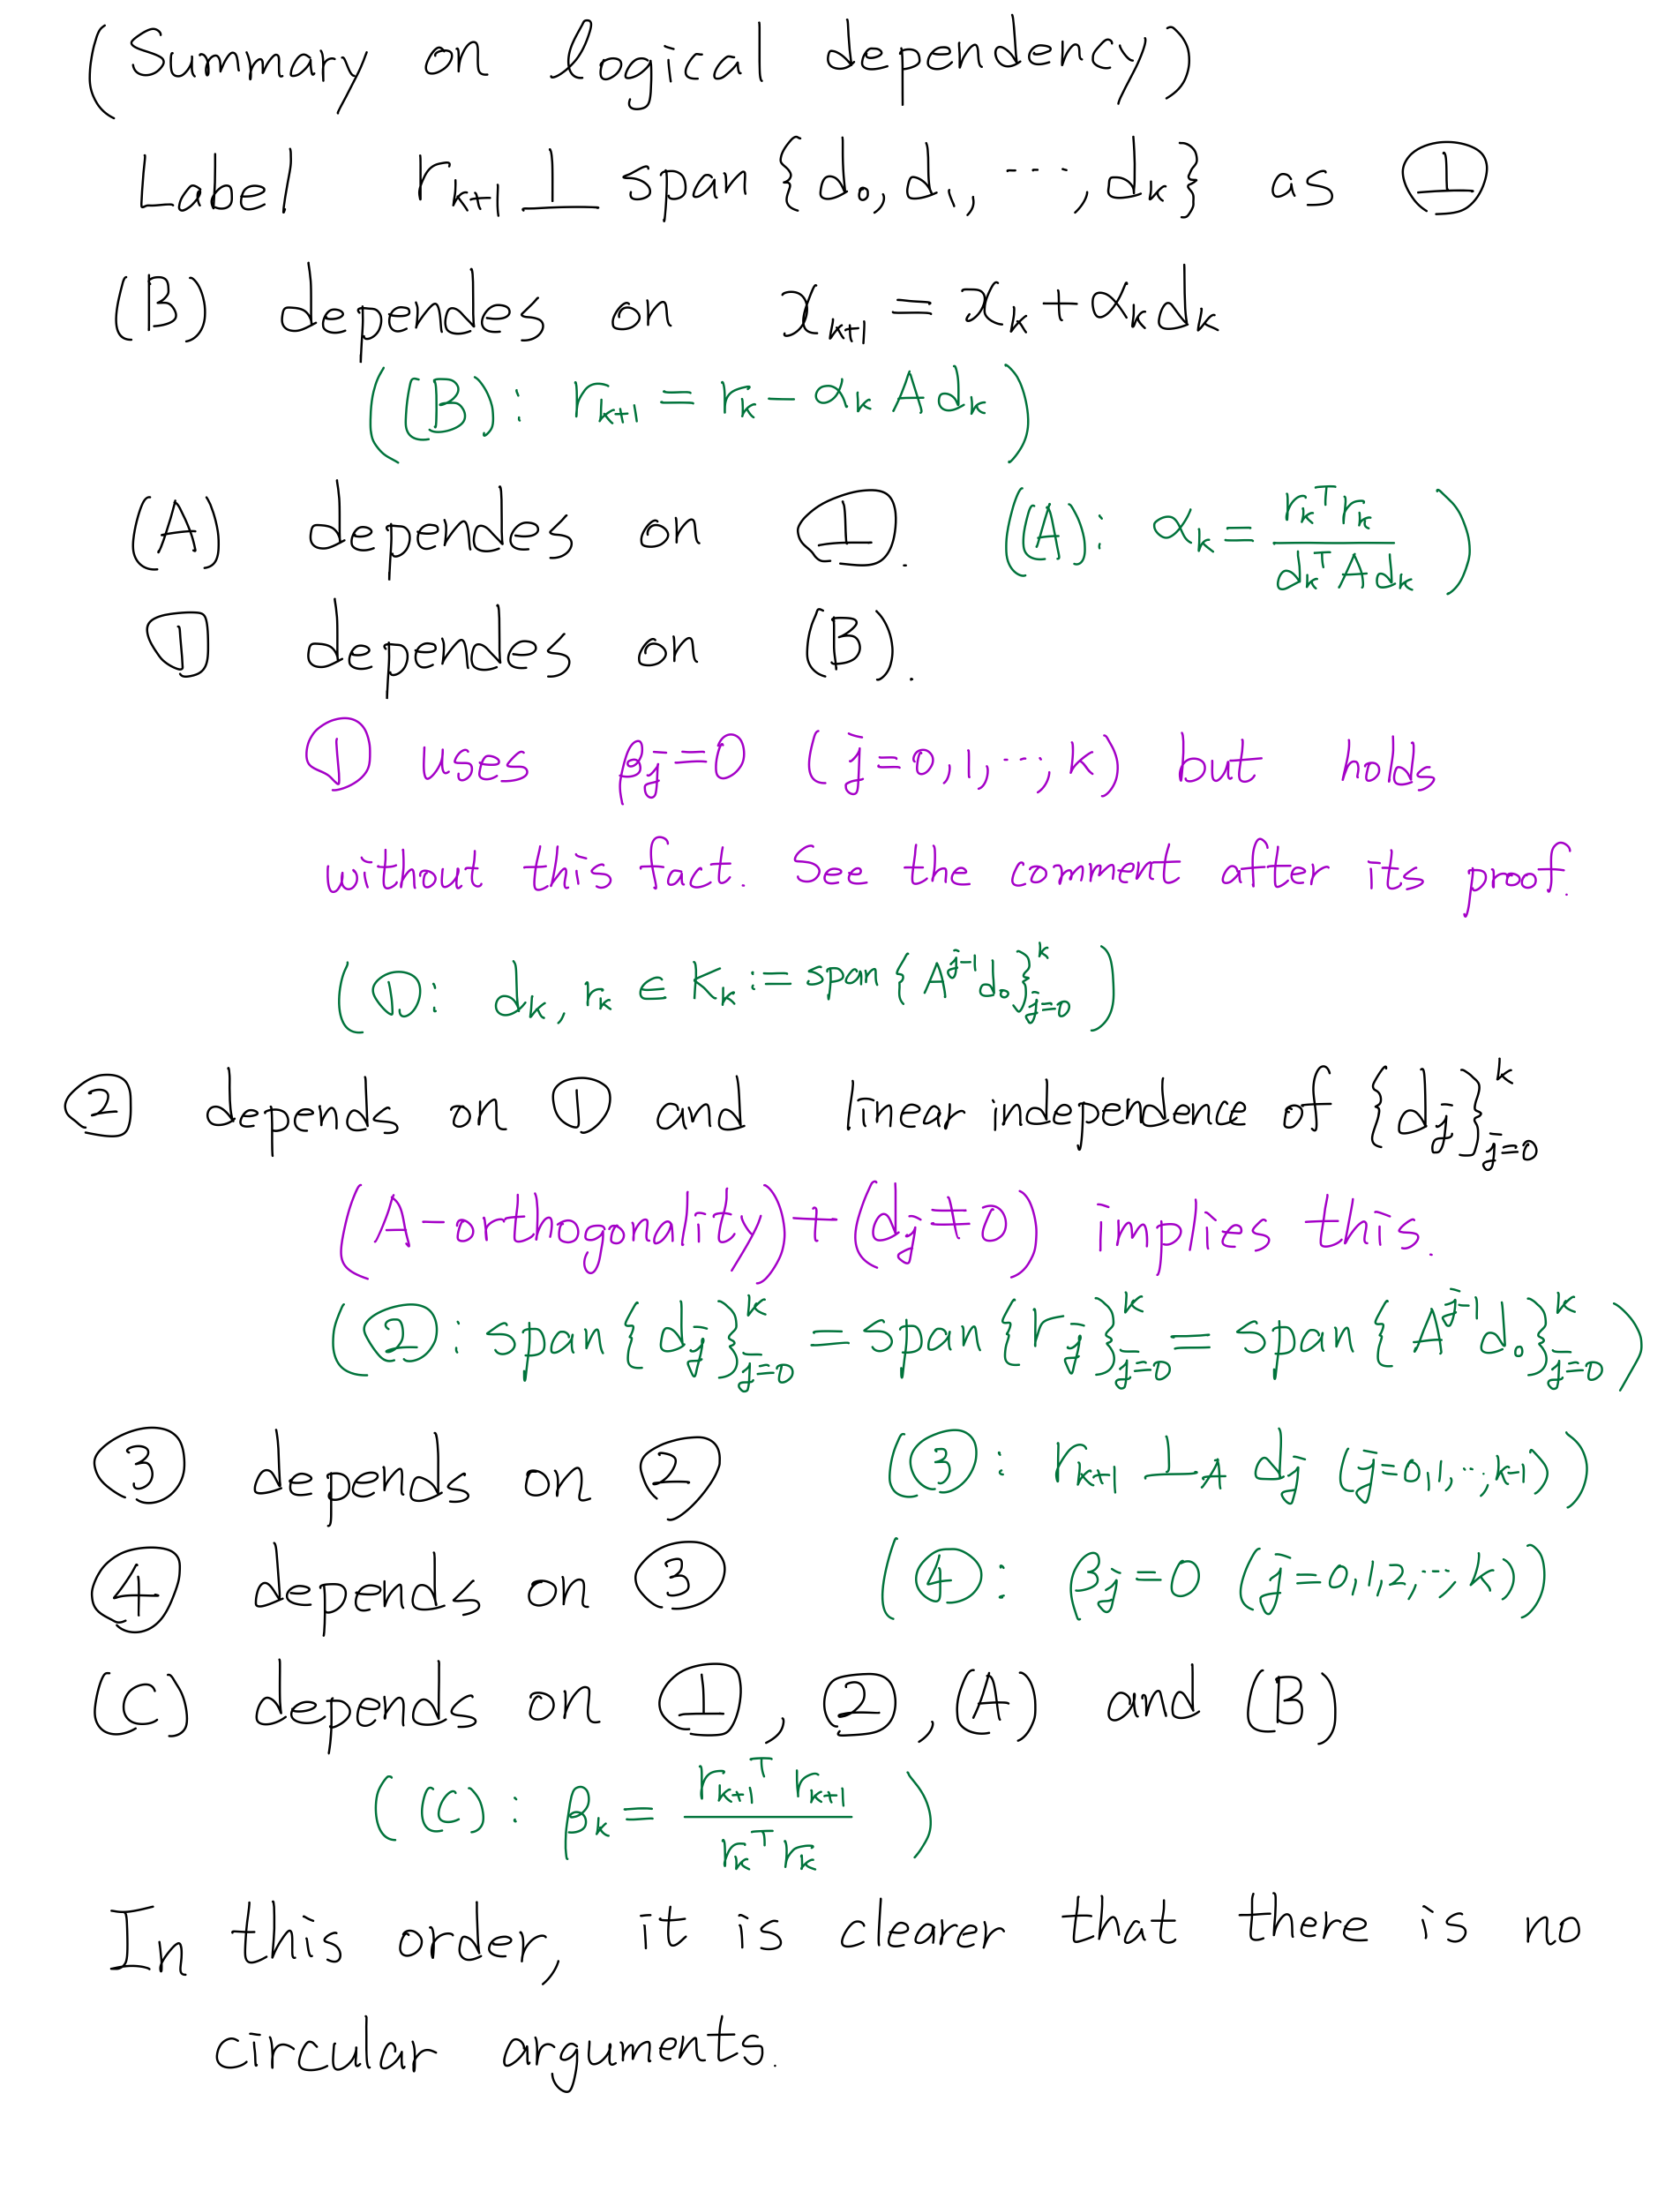 (Summary on logical dependency)
Label r_{k+1} ⊥ span{d_0, d_1, ⋯, d_k} as Ⓘ⊥
(B) dependes on x_{k+1} = x_k + α_k d_k
((B): r_{k+1} = r_k - α_k A d_k)
(A) dependes on ⊥⃝. ((A): α_k = \frac{r_k^T r_k}{d_k^T A d_k})
① dependes on (B).
① uses β_j=0 (j=0,1,⋯,k) but holds
without this fact. See the comment after its proof.
(①: d_k, r_k ∈ K_k := span{A^{j-1}d_0}_{j=0}^k)
② depends on ① and linear independence of {d_j}_{j=0}^k
(A-orthogonality)+(d_j≠0) implies this.
(②: span{d_j}_{j=0}^k = span{r_j}_{j=0}^k = span{A^{j-1}d_0}_{j=0}^k)
③ depends on ② (③: r_{k+1} ⊥_A d_j (j=0,1,⋯,k-1))
④ depends on ③ (④: β_j=0 (j=0,1,2,⋯,k))
(C) depends on ⊥⃝, ②, (A) and (B)
((C): β_k = \frac{r_{k+1}^T r_{k+1}}{r_k^T r_k})
In this order, it is clearer that there is no
circular arguments.